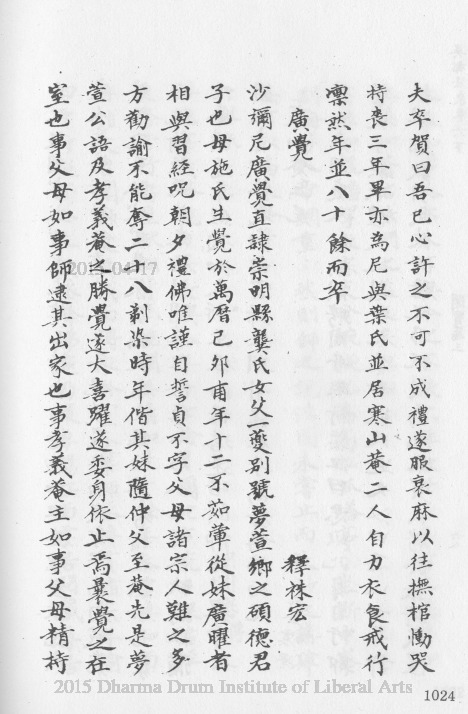 夫卒賀曰吾已心許之不可不成禮遂服衰麻以往撫棺慟哭
持喪三年畢亦為尼與葉氏並居寒山菴二人自力衣食戒行
凛然年並八十餘而卒
廣覺
釋袾宏
沙彌尼廣覺直隷崇明縣龔氏女父一變別號夢萱鄉之碩德君
子也母施氏生覺於萬曆己夘甫年十二不茹葷從妹廣曜者
相與習經呪朝夕禮佛唯謹自誓貞不字父母諸宗人難之多
方勸諭不能奪二十八剃染時年偕其妹隨仲父至菴先是夢
萱公語及孝義菴之勝覺遂大喜躍遂委身依止焉曩覺之在
室也事父母如事師逮其出家也事孝義菴主如事父母精持
2015-04-17
2015 Dharma Drum Institute of Liberal Arts
1024